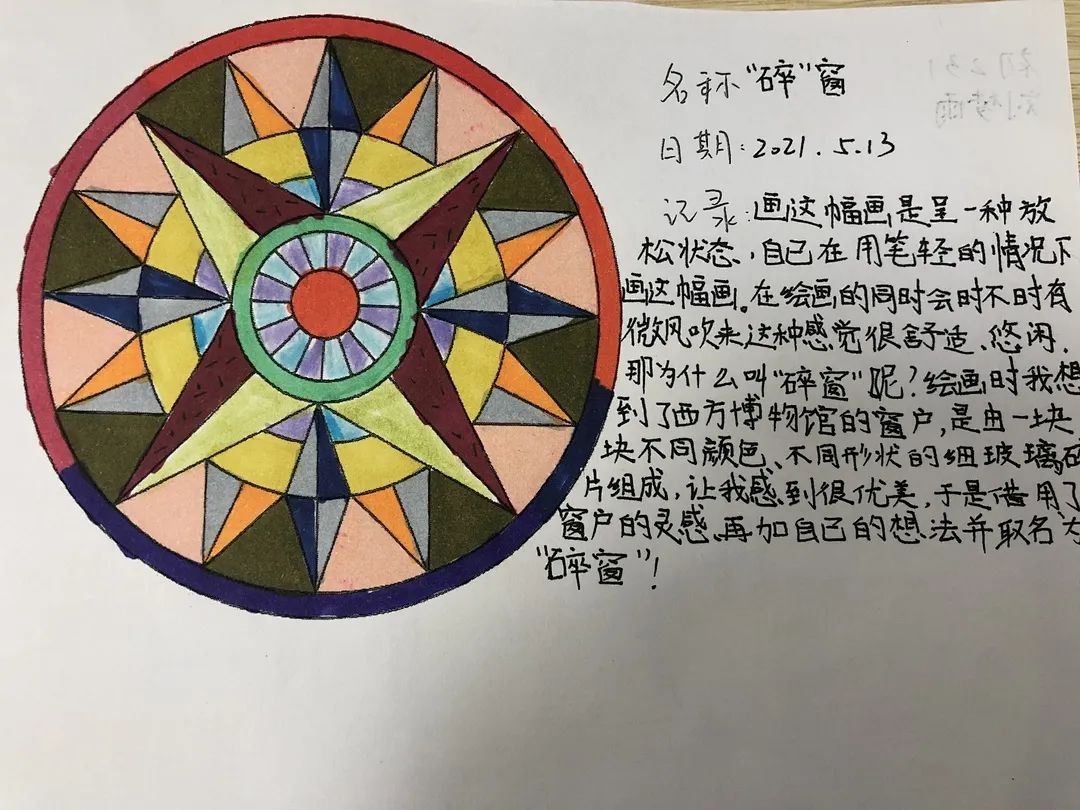 名称“碎”窗
日期:2021.5.13
记录:画这幅画是呈一种放
松状态,自己在用笔轻的情况下
画这幅画。在绘画的同时会时不时有
微风吹来这种感觉很舒适、悠闲.
那为什么叫“碎窗”呢?绘画时我想
到了西方博物馆的窗户,是由一块
块不同颜色、不同形状的细玻璃碎
片组成,让我感到很优美,于是借用了
窗户的灵感、再加自己的想法并取名为
“碎窗”!